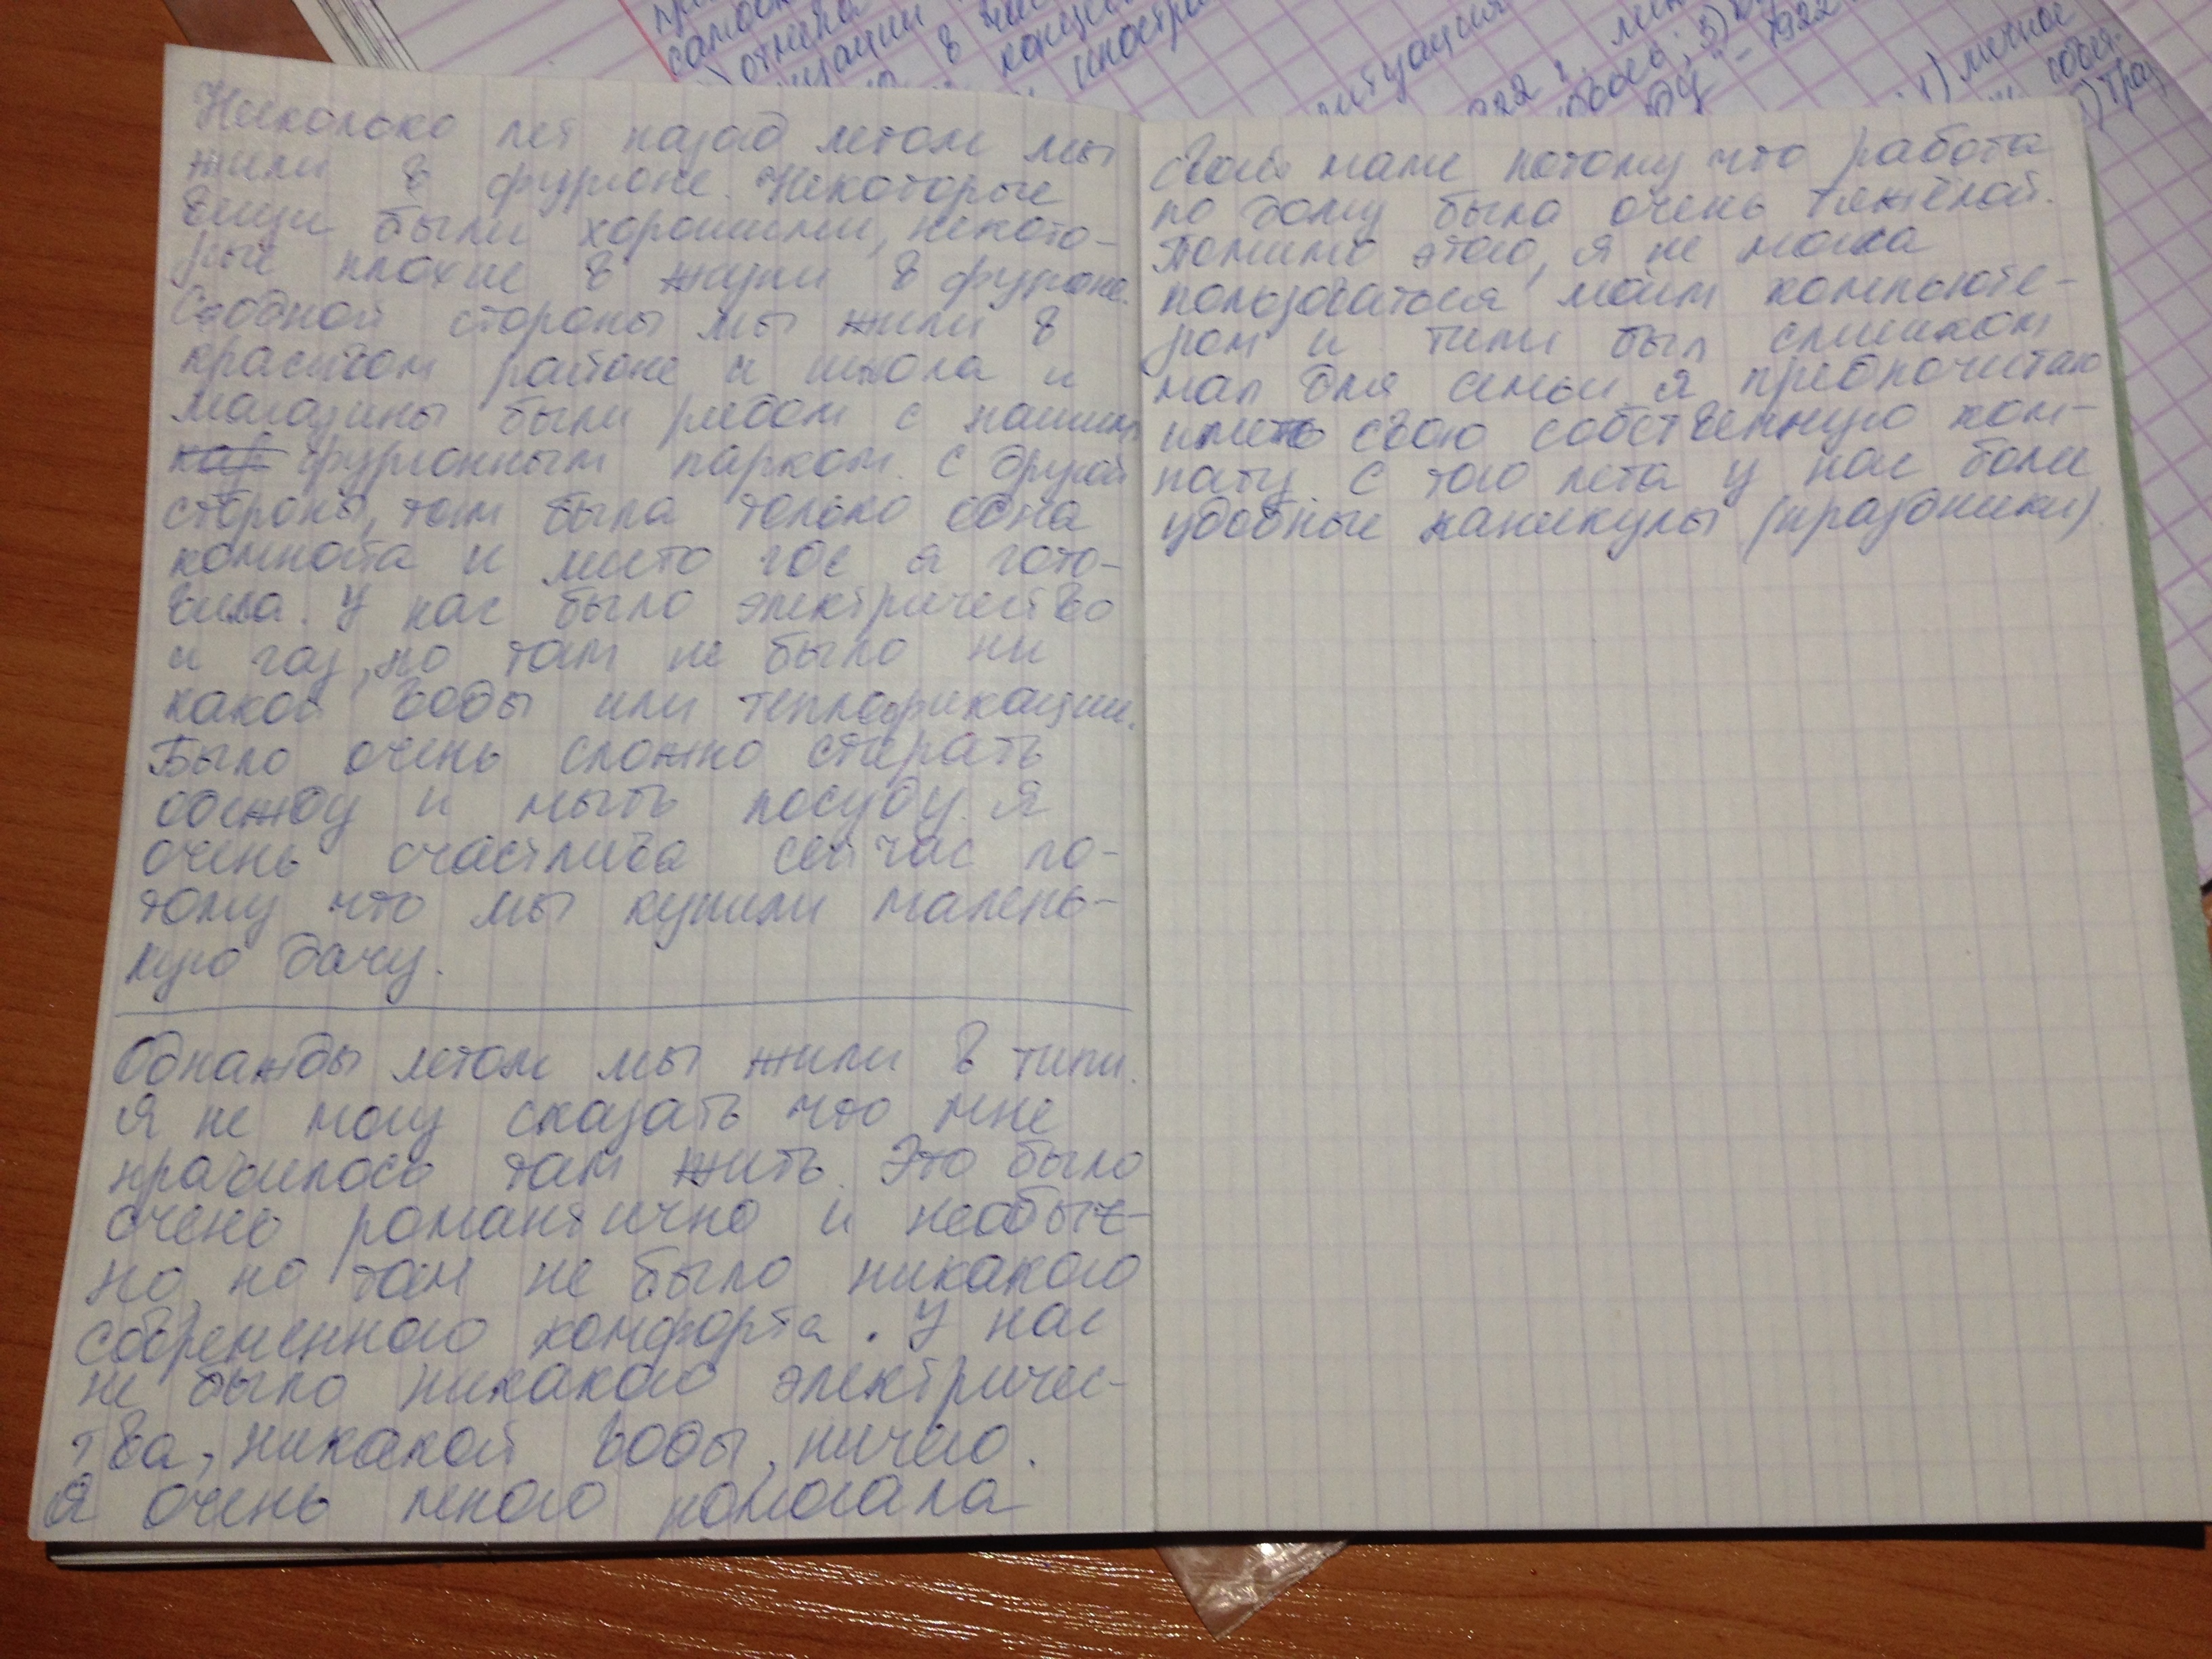 Несколько лет назад летом мы
жили в фургоне. Некоторые
вещи были хорошими, некото-
рые плохие в жизни в фургоне.
С одной стороны мы жили в
красивом районе и школа и
магазины были рядом с нашим
фургонным парком. С другой
стороны, там была только одна
комната и место где я гото-
вила. У нас было электричество
и газ, но там не было ни
какой воды или теплофикации.
Было очень сложно стирать
одежду и мыть посуду. Я
очень счастлива сейчас по-
тому что мы купили малень-
кую дачу.
Однажды летом мы жили в типи.
Я не могу сказать что мне
нравилось там жить. Это было
очень романтично и необыч-
но, но там не было никакого
современного комфорта. У нас
не было никакого электричес-
тва, никакой воды, ничего.
Я очень много помогала
своей маме потому что работа
по дому была очень тяжёлой.
Помимо этого, я не могла
пользоваться моим компьюте-
ром и типи был слишком
мал для семьи. Я предпочитаю
иметь свою собственную ком-
нату. С того лета у нас более
удобные каникулы (праздники).
отмена
ситуация
1922
1) личное